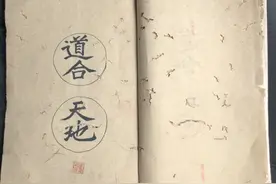 道合
天地